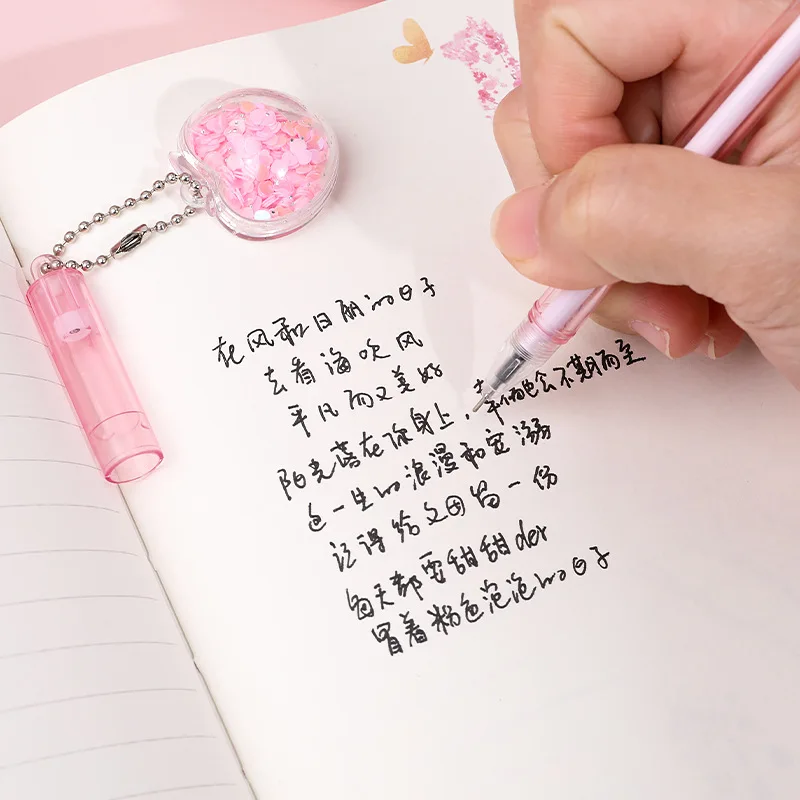 在风和日丽的日子
去看海吹风
平凡而又美好
阳光落在你身上，幸福也会不期而至
这一生的浪漫和宠溺
记得给文因留一份
每天都要甜甜der
冒着粉色泡泡的日子